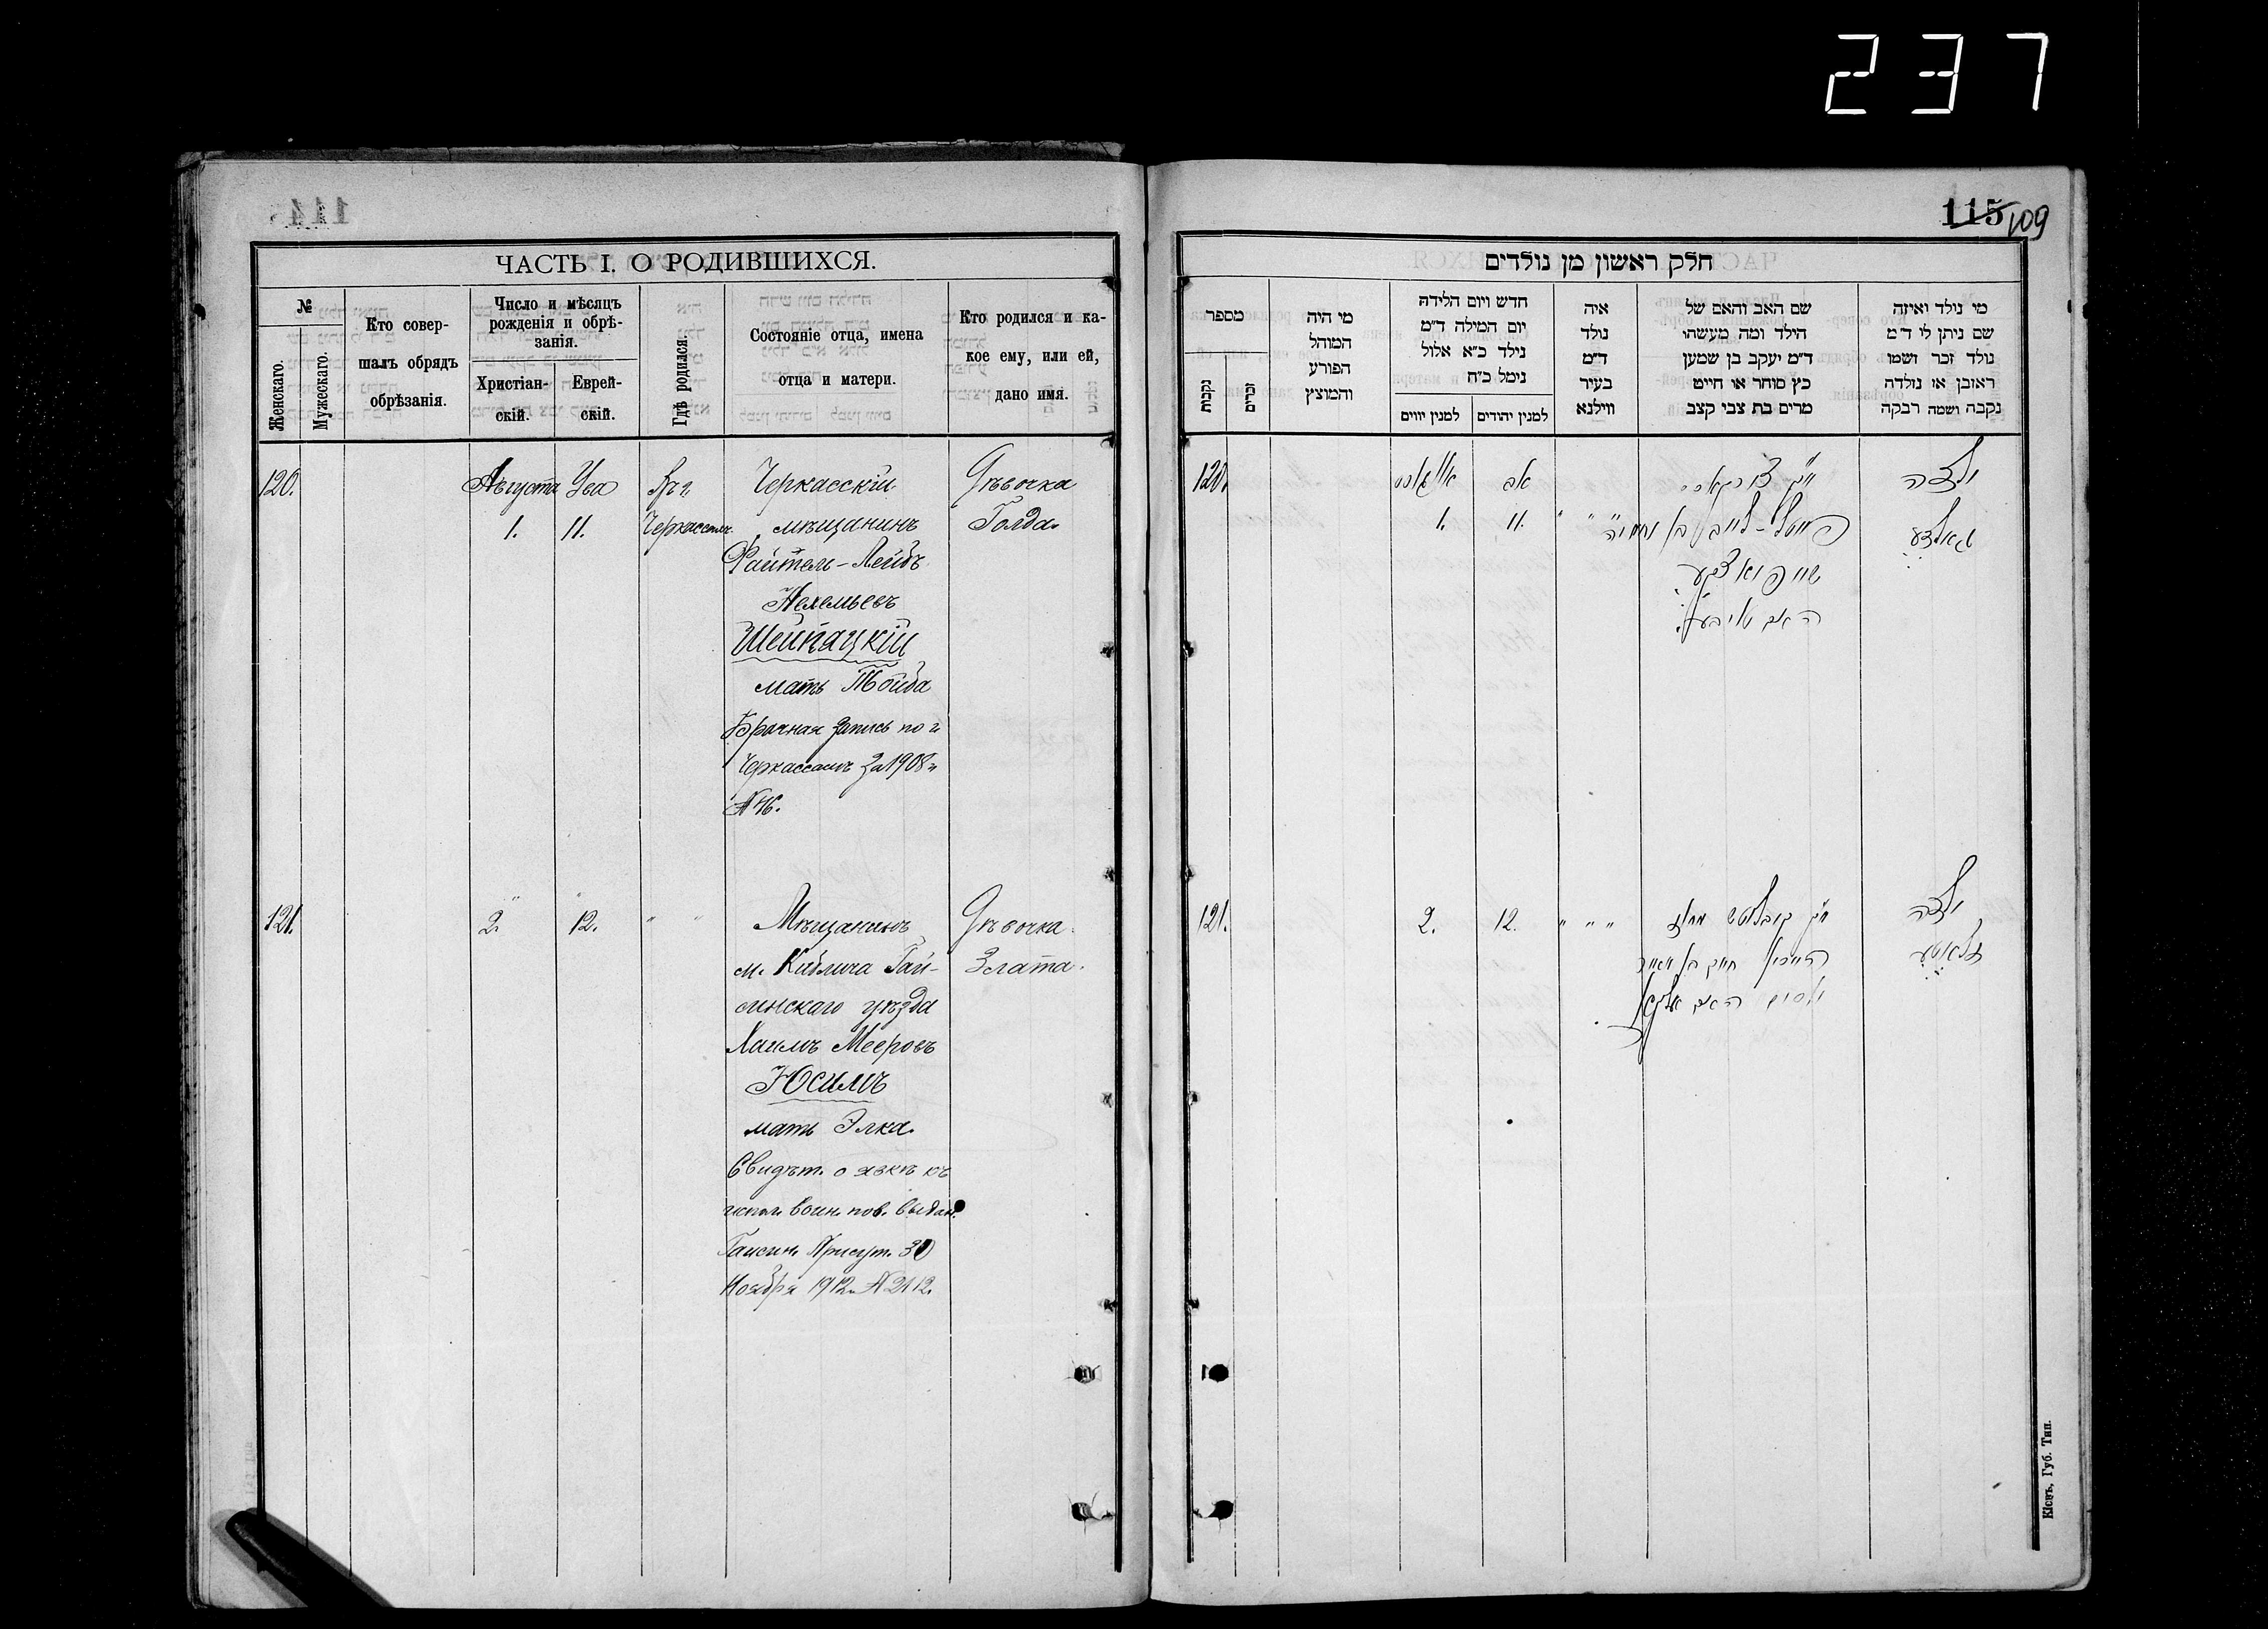 237
114
ЧАСТЬ I. О РОДИВШИХСЯ.
№
Женскаго.
Мужескаго.
Кто совер-
шалъ обрядъ
обрѣзанія.
Число и мѣсяцъ
рожденія и обрѣ-
занія.
Христіан-
скій.
Еврей-
скій.
Гдѣ родился.
Состояніе отца, имена
отца и матери.
Кто родился и ка-
кое ему, или ей,
дано имя.
120.
Августа
1.
Ува
11.
Въ г.
Черкассахъ
Черкасскій
мѣщанинъ
Файтель-Лейбъ
Нехемьевъ
Шейпацкій
мать Тойба
Брачная запись по г.
Черкассамъ за 1908 г.
№ 46.
Дѣвочка
Голда.
121.
2.
12.
" "
Мѣщанинъ
м. Кублича Гай-
синскаго уѣзда
Хаимъ Мееровъ
Юсимъ
мать Элка.
Свидѣт. о явкѣ къ
испол. воин. пов. выдан.
Гайсин. Присут. 30
Ноября 1912 г. № 2112.
Дѣвочка
Злата.
115 109
חלק ראשון מן נולדים
מספר
נקבות
זכרים
מי היה
המוהל
הפורע
והמוצץ
חדש ויום הלידה
יום המילה ד״מ
נילד כ״א אלול
נימל כ״ח
למנין יווים
למנין יהודים
איה
נולד
ד״מ
בעיר
ווילנא
שם האב והאם של
הילד ומה מעשהו
ד״מ יעקב בן שמען
כץ סוחר או חייט
מרים בת צבי קצב
מי נולד ואיזה
שם ניתן לו ד״מ
נולד זכר ושמו
ראובן או נולדה
נקבה ושמה רבקה
120.
1.
אב
11.
" "
האם טויבע
ילדה
גאלדע
121.
2.
12.
" " "
חיים בן מאיר
יוסים האם עלקא
ילדה
זלאטע
Кіевъ, Губ. Тип.